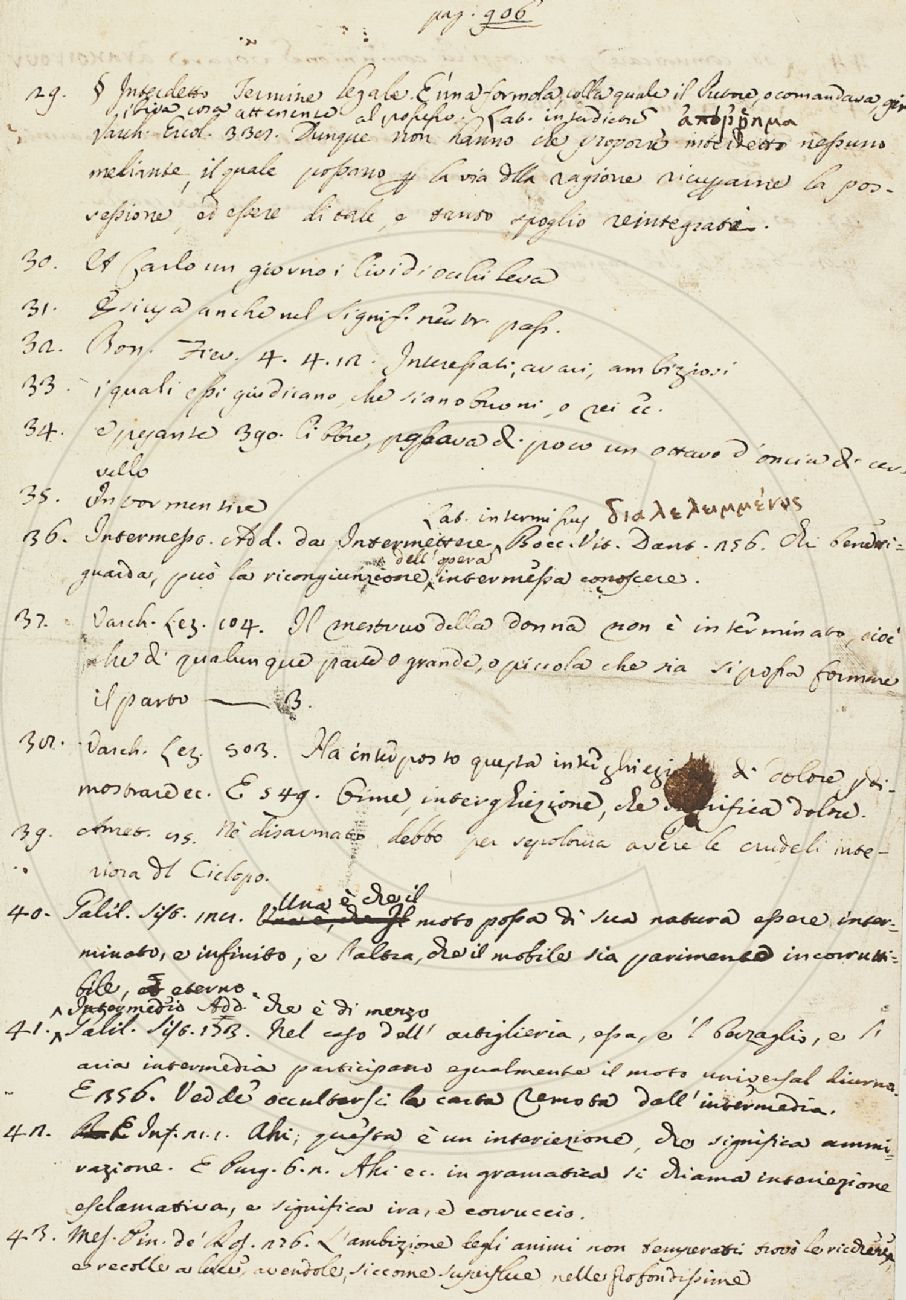 pag. 906
29. § Intedetto Termine legale. È una formola, colla quale il Pretore, o comandava,
cosa attenente al popolo. Lat. interdictum ἀπόῤῥημα
Varch. Ercol. 332. Dunque non hanno che proporre intedetto nessuno
mediante, il quale possano p la via dlla ragione ricuperarne la pos-
sessione, ed essere di tale, e tanto spoglio reintegrati.
30. Et Carlo un giorno i lividi occhi leva
31. E si usa anche nel signif. neutr. pass.
32. Bon. Fier. 4. 4. 12. Interessati, avari, ambiziosi
33. i quali essi giudicano, che siano buoni, o rei ec.
34. e pesante 390. libbre, pesava di poco un ottavo d'oncia di cer-
vello
35. Intormentire
Lat. intermissus διαλελειμμένος
36. Intermesso. Add. da Intermettere. Bocc. Vit. Dant. 256. Chi ben
dell'opera
guarda, può la ricongiunzione intermessa conoscere.
37. Varch. Lez. 104. Il mestruo della donna non è interminato, cioè
che di qualunque parte o grande, o piccola che sia si possa formare
il parto —— 3.
38. Varch. Lez. 503. Ha interposto questa di dolore, p di-
mostrare ec. E 549. Oime, interghiezione, che significa dolore.
39. Amet. 15. Nè disarmato debbo per sepoltura avere le crudeli inte-
riora dl Ciclopo.
Una è che il
40. Galil. Sist. 121. moto possa di sua natura essere inter-
minato, e infinito, e l'altra, che il mobile sia parimente incorrutti=
bile, ed eterno.
Intermedio Add. che è di mezzo
41. Galil. Sist. 173. Nel caso dell' artiglieria, essa, e 'l berzaglio, e l'
aria intermedia participano egualmente il moto universal diurno.
E 356. Vedde occultarsi la carta remota dall'intermedia.
42. Inf. 21. 1. Ahi, questa è un interiezione, che significa ammi=
razione. E Purg. 6. 2. Ahi ec. in gramatica si chiama interiezione
esclamativa, e significa ira, e corruccio.
43. Mes. Pin. de' Ros. 236. L'ambizione degli animi non temperati trovò le ricchezze,
e recolle a luce, avendole, siccome superflue nelle profondissime